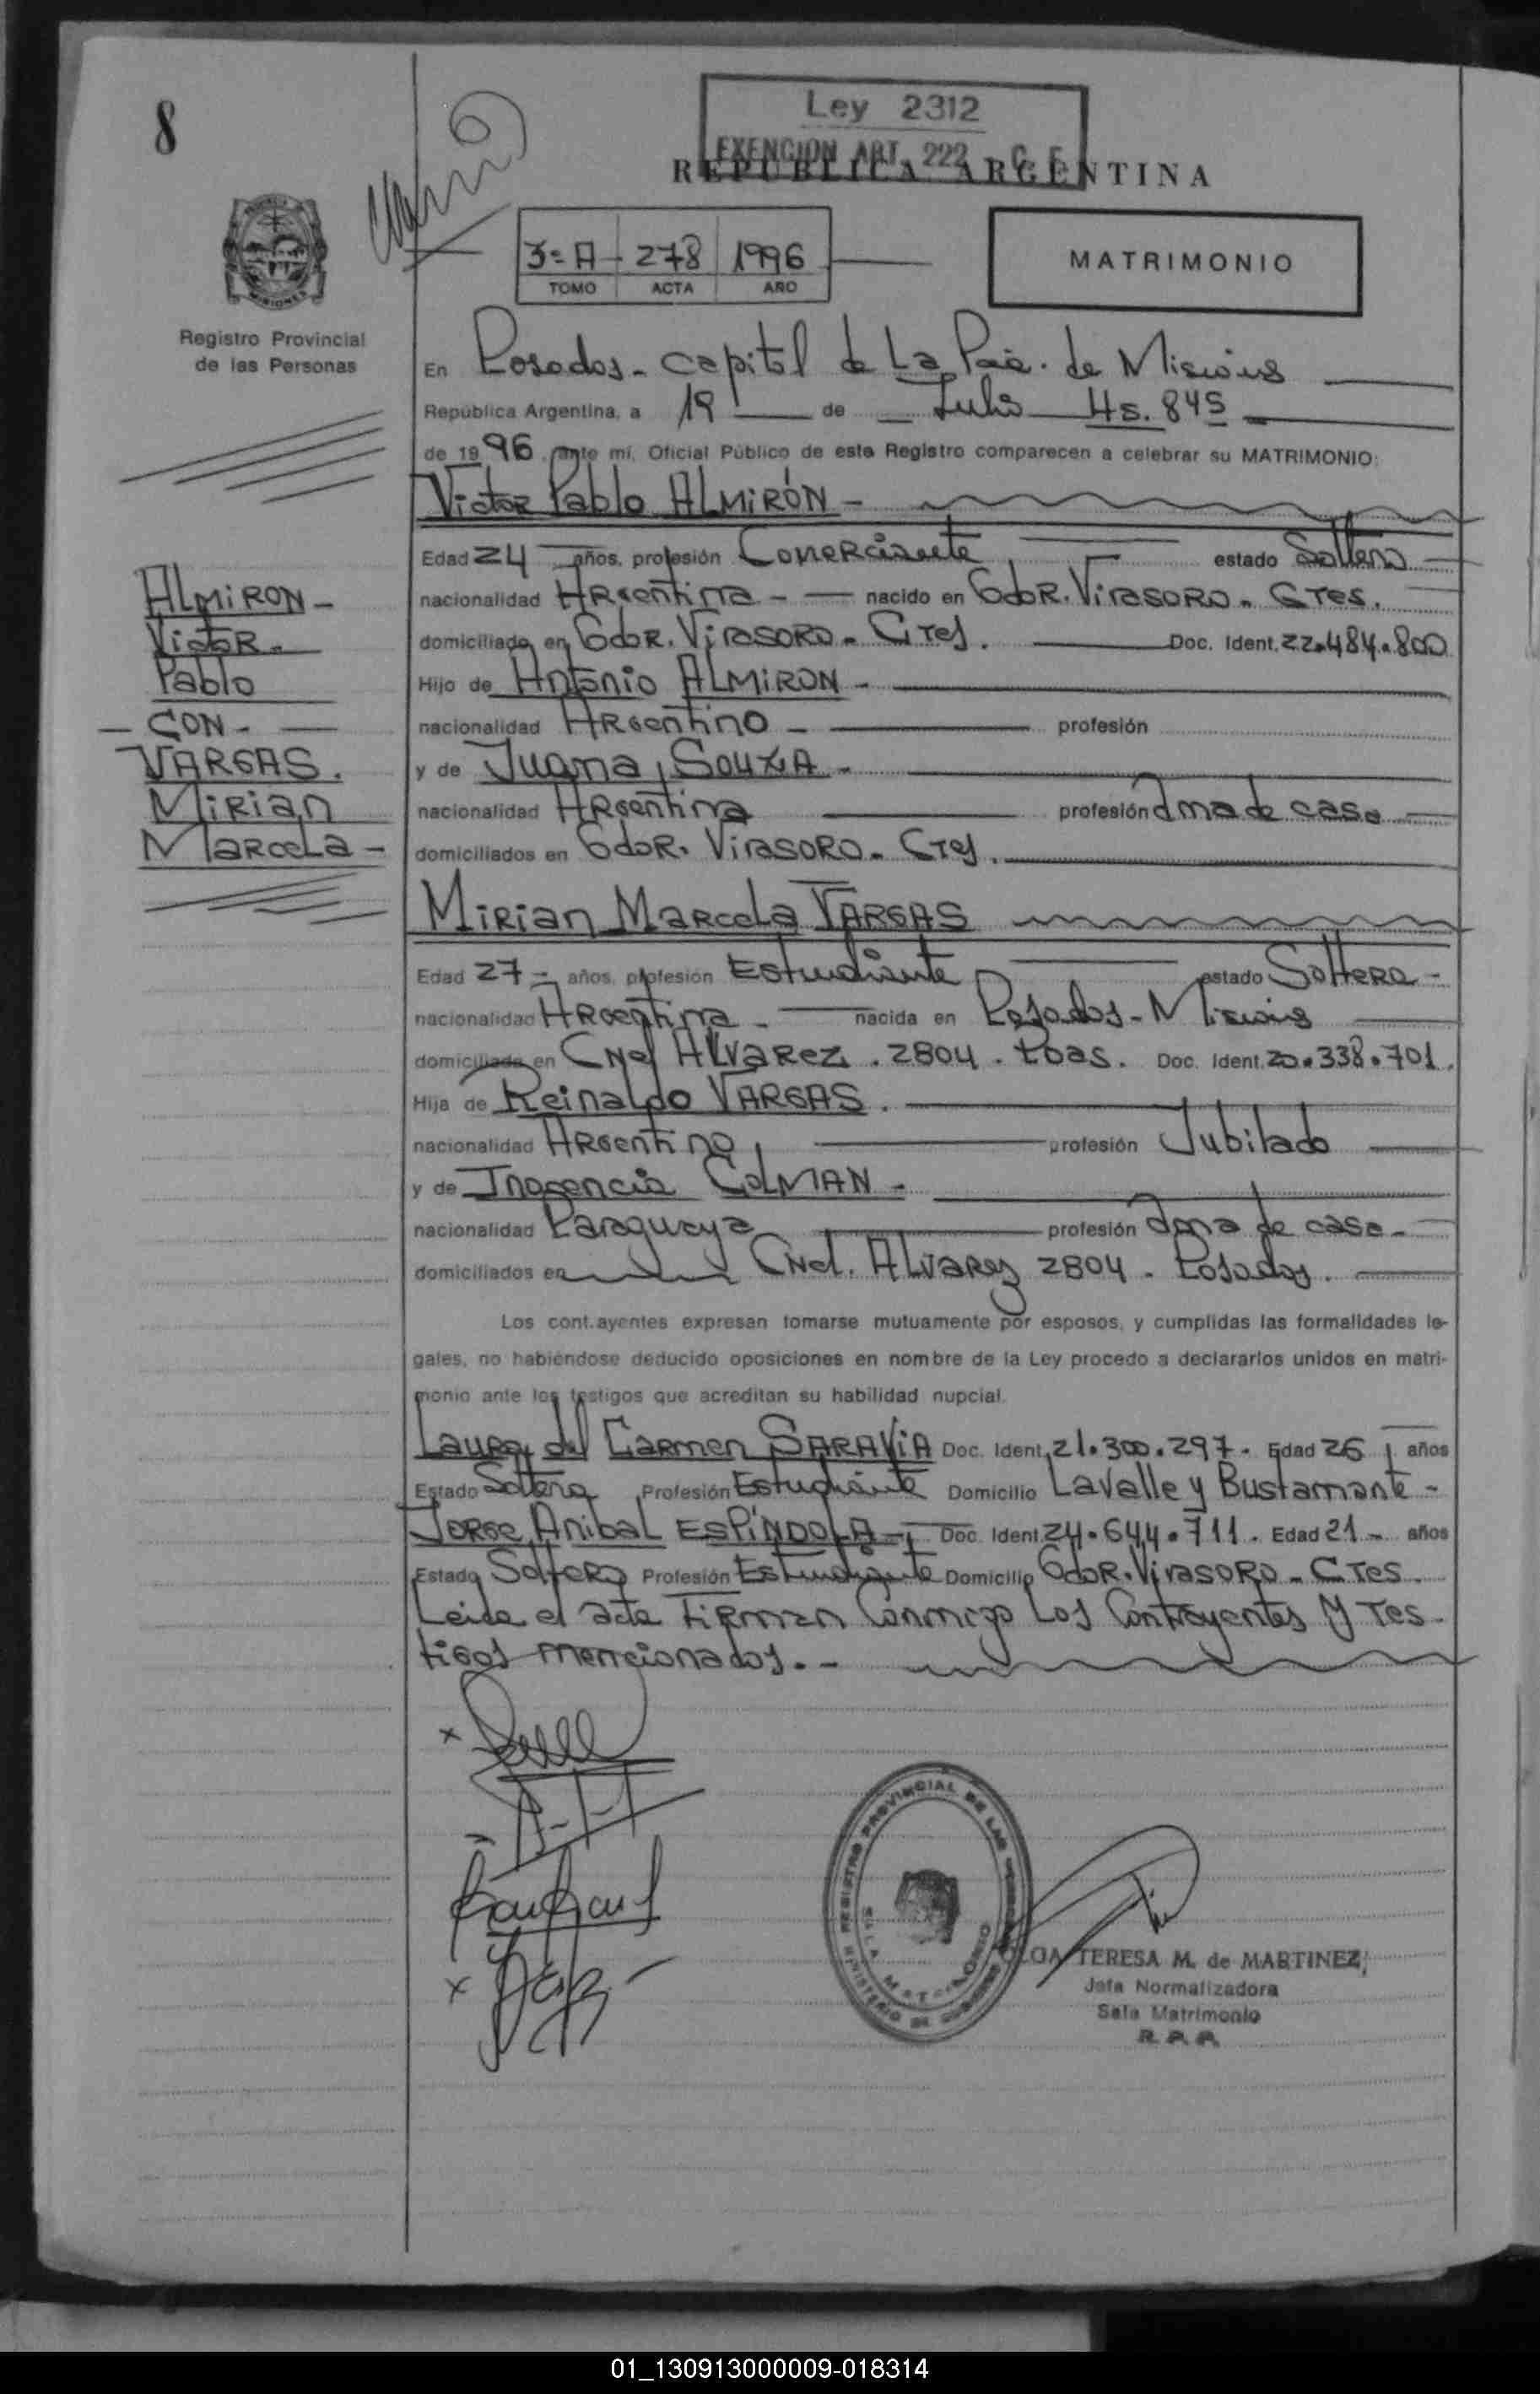 8
Ley 2312
EXENCION ART. 222 C. F.
REPUBLICA ARGENTINA
3º A 278 1996
TOMO ACTA AÑO
MATRIMONIO
MISIONES
Registro Provincial
de las Personas
En Posadas - Capital de La Pcia. de Misiones
República Argentina, a 19 de Julio Hs. 845
de 1996 ante mí, Oficial Público de este Registro comparecen a celebrar su MATRIMONIO:
Victor Pablo ALMIRÓN -
Edad 24 años, profesión Comerciante estado Soltero
nacionalidad Argentina - nacido en Gdor. Virasoro - Ctes.
domiciliado en Gdor. Virasoro - Ctes. Doc. Ident. 22.484.800
Hijo de Antonio ALMIRON -
nacionalidad Argentino - profesión
y de Juana SOUZA -
nacionalidad Argentina profesión Ama de casa
domiciliados en Gdor. Virasoro - Ctes.
ALMIRON -
Victor -
Pablo
- CON -
VARGAS.
Mirian
Marcela -
Mirian Marcela VARGAS
Edad 27 - años, profesión Estudiante estado Soltera -
nacionalidad Argentina - nacida en Posadas - Misiones
domiciliada en Cnel Alvarez . 2804 . Pdas. Doc. Ident. 20.338.701.
Hija de Reinaldo VARGAS.
nacionalidad Argentino profesión Jubilado
y de Inocencia COLMAN -
nacionalidad Paraguaya profesión Ama de casa -
domiciliados en Cnel. Alvarez 2804 - Posadas.
Los cont.ayentes expresan tomarse mutuamente por esposos, y cumplidas las formalidades le-
gales, no habiéndose deducido oposiciones en nombre de la Ley procedo a declararlos unidos en matri-
monio ante los testigos que acreditan su habilidad nupcial.
Laura del Carmen SARAVIA Doc. Ident. 21.300.297 - Edad 26 años
Estado Soltera Profesión Estudiante Domicilio Lavalle y Bustamante -
Jorge Anibal ESPÍNDOLA - Doc. Ident. 24.644.711 . Edad 21 - años
Estado Soltero Profesión Estudiante Domicilio Gdor. Virasoro - Ctes.
Leida el acta firman conmigo los contrayentes y tes-
tigos mencionados. -
REGISTRO PROVINCIAL DE LAS PERSONAS
MINISTERIO DE GOBIERNO
SALA MATRIMONIO
TERESA M. de MARTINEZ
Jefa Normalizadora
Sala Matrimonio
R. P. P.
01_130913000009-018314